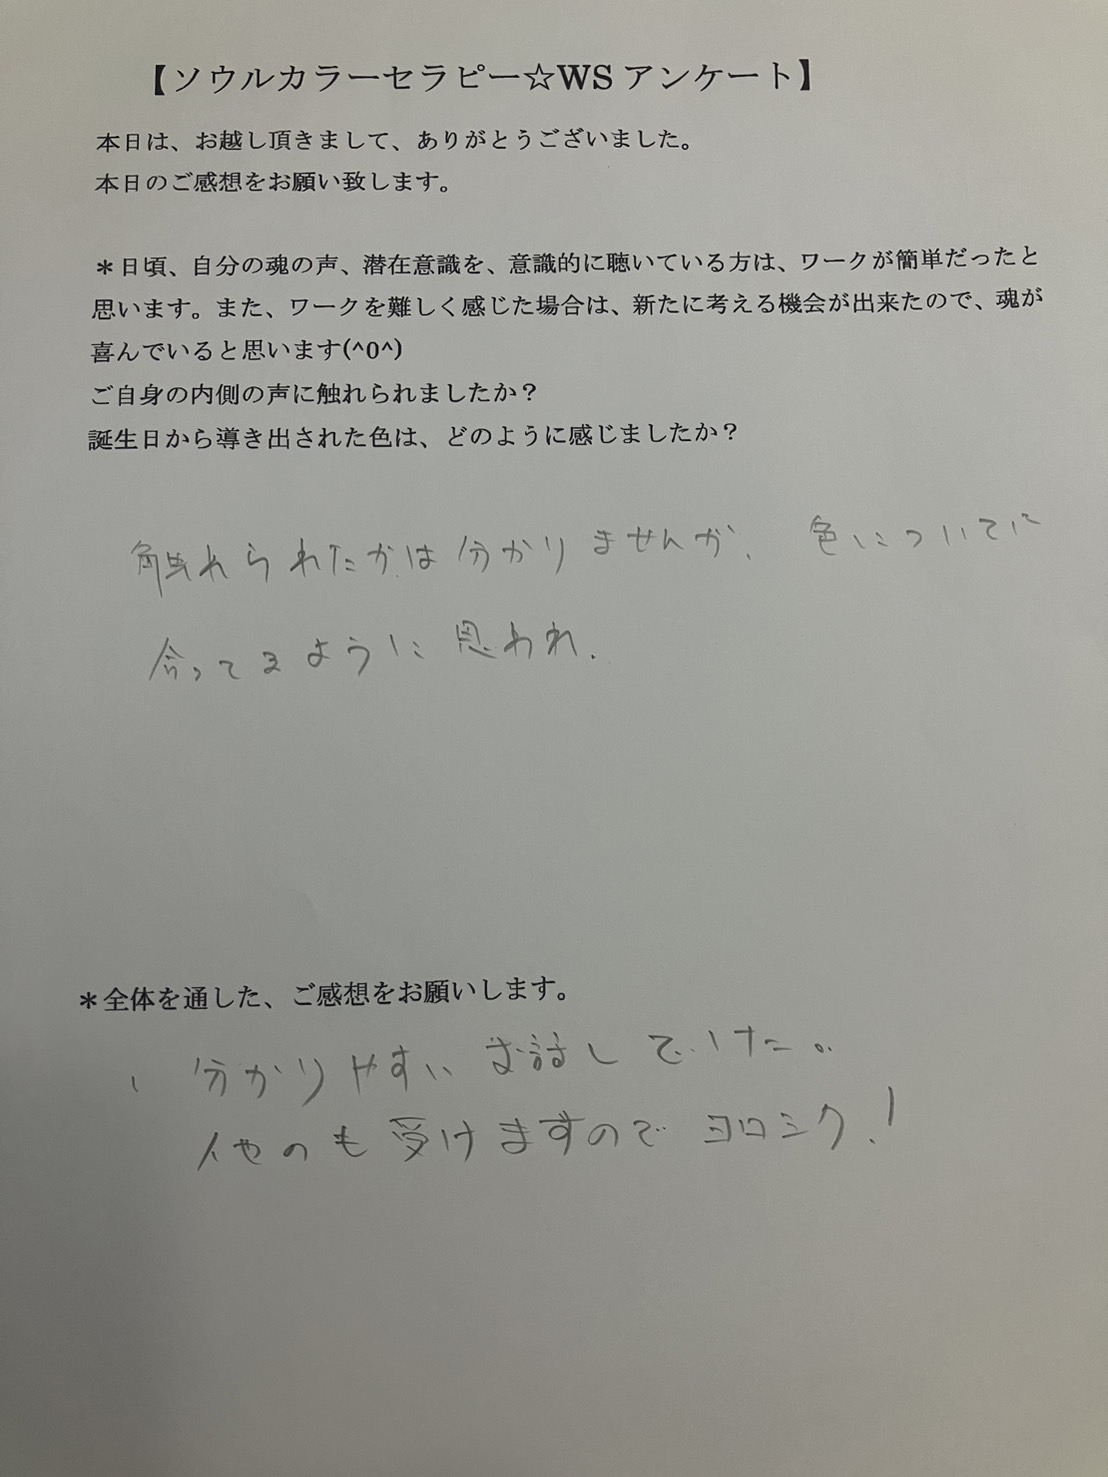 【ソウルカラーセラピー☆WS アンケート】
本日は、お越し頂きまして、ありがとうございました。
本日のご感想をお願い致します。
＊日頃、自分の魂の声、潜在意識を、意識的に聴いている方は、ワークが簡単だったと
思います。また、ワークを難しく感じた場合は、新たに考える機会が出来たので、魂が
喜んでいると思います(^0^)
ご自身の内側の声に触れられましたか？
誕生日から導き出された色は、どのように感じましたか？
触れられたかは分かりませんが、色については
合ってるように思われ.
＊全体を通した、ご感想をお願いします。
、分かりやすいお話しでした。
他のも受けますのでヨロシク!